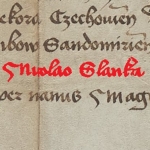 ekora Czechovien
bow Sandomirien
Nicolao Slanka
per manus Mag